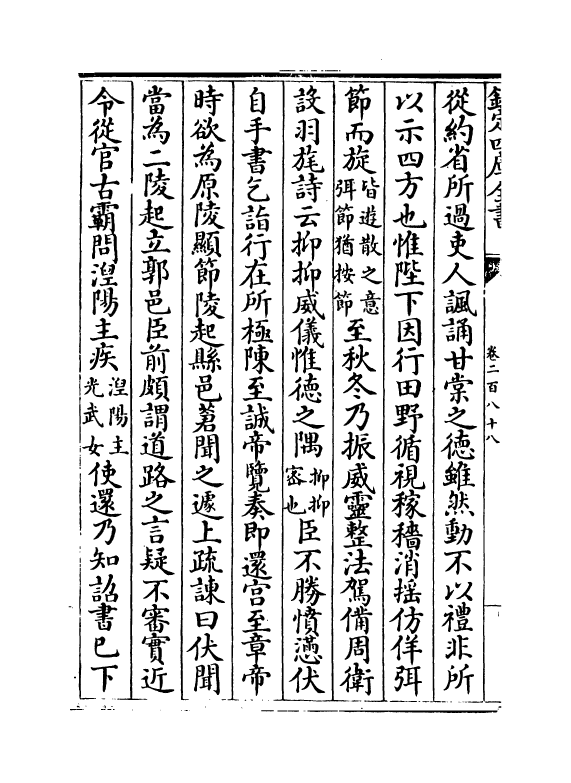 欽定四庫全書
卷二百八十八
從約省所過吏人諷誦甘棠之德雖然動不以禮非所
以示四方也惟陛下因行田野循視稼穡消揺仿佯弭
節而旋皆遊散之意弭節猶按節至秋冬乃振威靈整法駕備周衛
設羽旄詩云抑抑威儀惟德之隅抑抑密也臣不勝憤懣伏
自手書乞詣行在所極陳至誠帝覽奏即還宫至章帝
時欲為原陵顯節陵起縣邑蒼聞之遽上疏諫曰伏聞
當為二陵起立郭邑臣前頗謂道路之言疑不審實近
令從官古霸問湼陽主疾湼陽主光武女使還乃知詔書已下